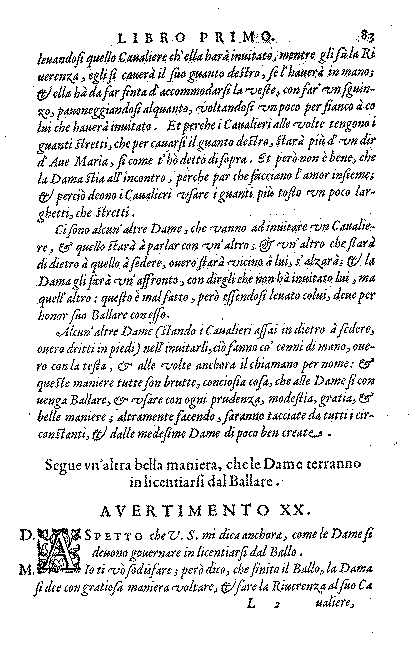 LIBRO PRIMO. 83
leuandosi quello Caualiere ch'ella harà inuitato, mentre gli fà la Ri
uerenza, egli si cauerà il suo guanto destro, se l'hauerà in mano;
& ella hà da far finta d'accommodarsi la veste, con far' vn sguin-
zo, pauoneggiandosi alquanto, voltandosi vn poco per fianco à co
lui che hauerà inuitato. Et perche i Caualieri alle volte tengono i
guanti stretti, che per cauarsi il guanto destro, starà più d'vn dir
d'Aue Maria, si come t'hò detto di sopra. Et però non è bene, che
la Dama stia all'incontro, perche par che facciano l'amor insieme;
& perciò deono i Caualieri vsare i guanti più tosto vn poco lar-
ghetti, che stretti.
Ci sono alcun'altre Dame, che vanno ad inuitare vn Caualie-
re, & quello starà à parlar con vn'altro; & vn'altro che starà
di dietro à quello à sedere, ouero starà vicino à lui, s'alzarà; & la
Dama gli farà vn'affronto, con dirgli che non hà inuitato lui, ma
quell'altro: questo è mal fatto, però essendosi leuato colui, deue per
honor suo Ballare con esso.
Alcun'altre Dame (stando i Caualieri assai in dietro à sedere,
ouero dritti in piedi) nell'inuitarli, ciò fanno co' cenni di mano, oue-
ro con la testa, & alle volte anchora il chiamano per nome: &
queste maniere tutte son brutte, conciosia cosa, che alle Dame si con
uenga Ballare, & vsare con ogni prudenza, modestia, gratia, &
belle maniere; altramente facendo, saranno tacciate da tutti i cir-
constanti, & dalle medesime Dame di poco ben create.
Segue vn'altra bella maniera, che le Dame terranno
in licentiarsi dal Ballare.
AVERTIMENTO XX.
D. ASPETTO che V. S. mi dica anchora, come le Dame si
deuono gouernare in licentiarsi dal Ballo.
M. Io ti vò sodisfare; però dico, che finito il Ballo, la Dama
si dee con gratiosa maniera voltare, & fare la Riuerenza al suo Ca
L 2 ualiere,